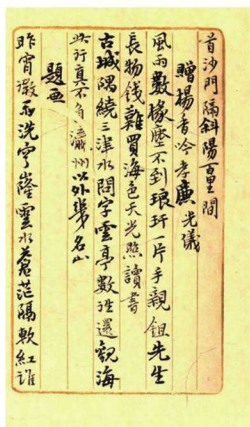 首沙門隔斜陽百里間
贈楊香吟孝廉光儀
風雨數椽塵不到琅玕一片手親鉏先生
長物錢難買海色天光照讀書
古城隅繞三津水問字雲亭數往還觀海
此行真不負瀛州以外幾名山
題畫
昨宵澂雨洗穹窿雲水蒼茫隔軟紅誰